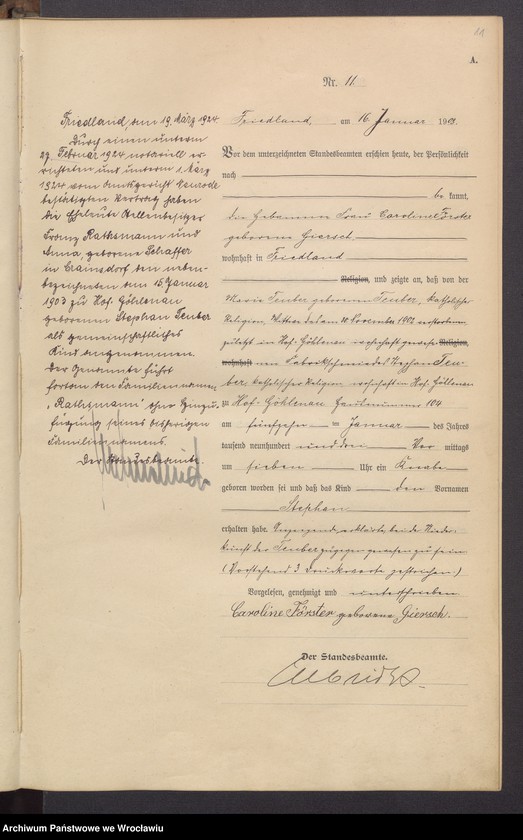 11
A.
Nr. 11.
Friedland, am 16. Januar 1903.
Vor dem unterzeichneten Standesbeamten erschien heute, der Persönlichkeit
nach
be kannt,
die Hebamme Frau Caroline Förster
geborene Giersch
wohnhaft in Friedland
Religion, und zeigte an, daß von der
Marie Teuber geborenen Teuber, katholischer
Religion, Witwe des am 10. November 1902 verstorbenen
zuletzt in Hof-Göhlenau wohnhaft gewesenen Religion,
wohnhaft Fabrikschmiedes Stephan Teu-
ber, katholischer Religion wohnhaft in Hof-Göhlenau
zu Hof-Göhlenau Hausnummer 104
am fünfzehn ten Januar des Jahres
tausend neunhundert und drei Vor mittags
um sieben Uhr ein Knabe
geboren worden sei und daß das Kind den Vornamen
Stephan
erhalten habe. Anzeigende erklärte, bei der Nieder-
kunft der Teuber zugegen gewesen zu sein
(Vorstehend 3 Druckworte gestrichen.)
Vorgelesen, genehmigt und unterschrieben
Caroline Förster geborene Giersch.
Der Standesbeamte.
Friedland, den 19. März 1924.
Durch einen unterm
27. Februar 1924 notariell er-
richteten und unterm 1. März
1924 vom Amtsgericht Neurode
bestätigten Vertrag haben
die Eheleute Stellenbesitzer
Franz Rathsmann und
Anna, geborene Schaffer
in Crainsdorf den neben-
bezeichneten am 15. Januar
1903 zu Hof-Göhlenau
geborenen Stephan Teuber
als gemeinschaftliches
Kind angenommen.
Der Genannte führt
fortan den Familiennamen
"Rathsmann" ohne Hinzu-
fügung seines bisherigen
Familiennamens.
Der Standesbeamte.
Archiwum Państwowe we Wrocławiu